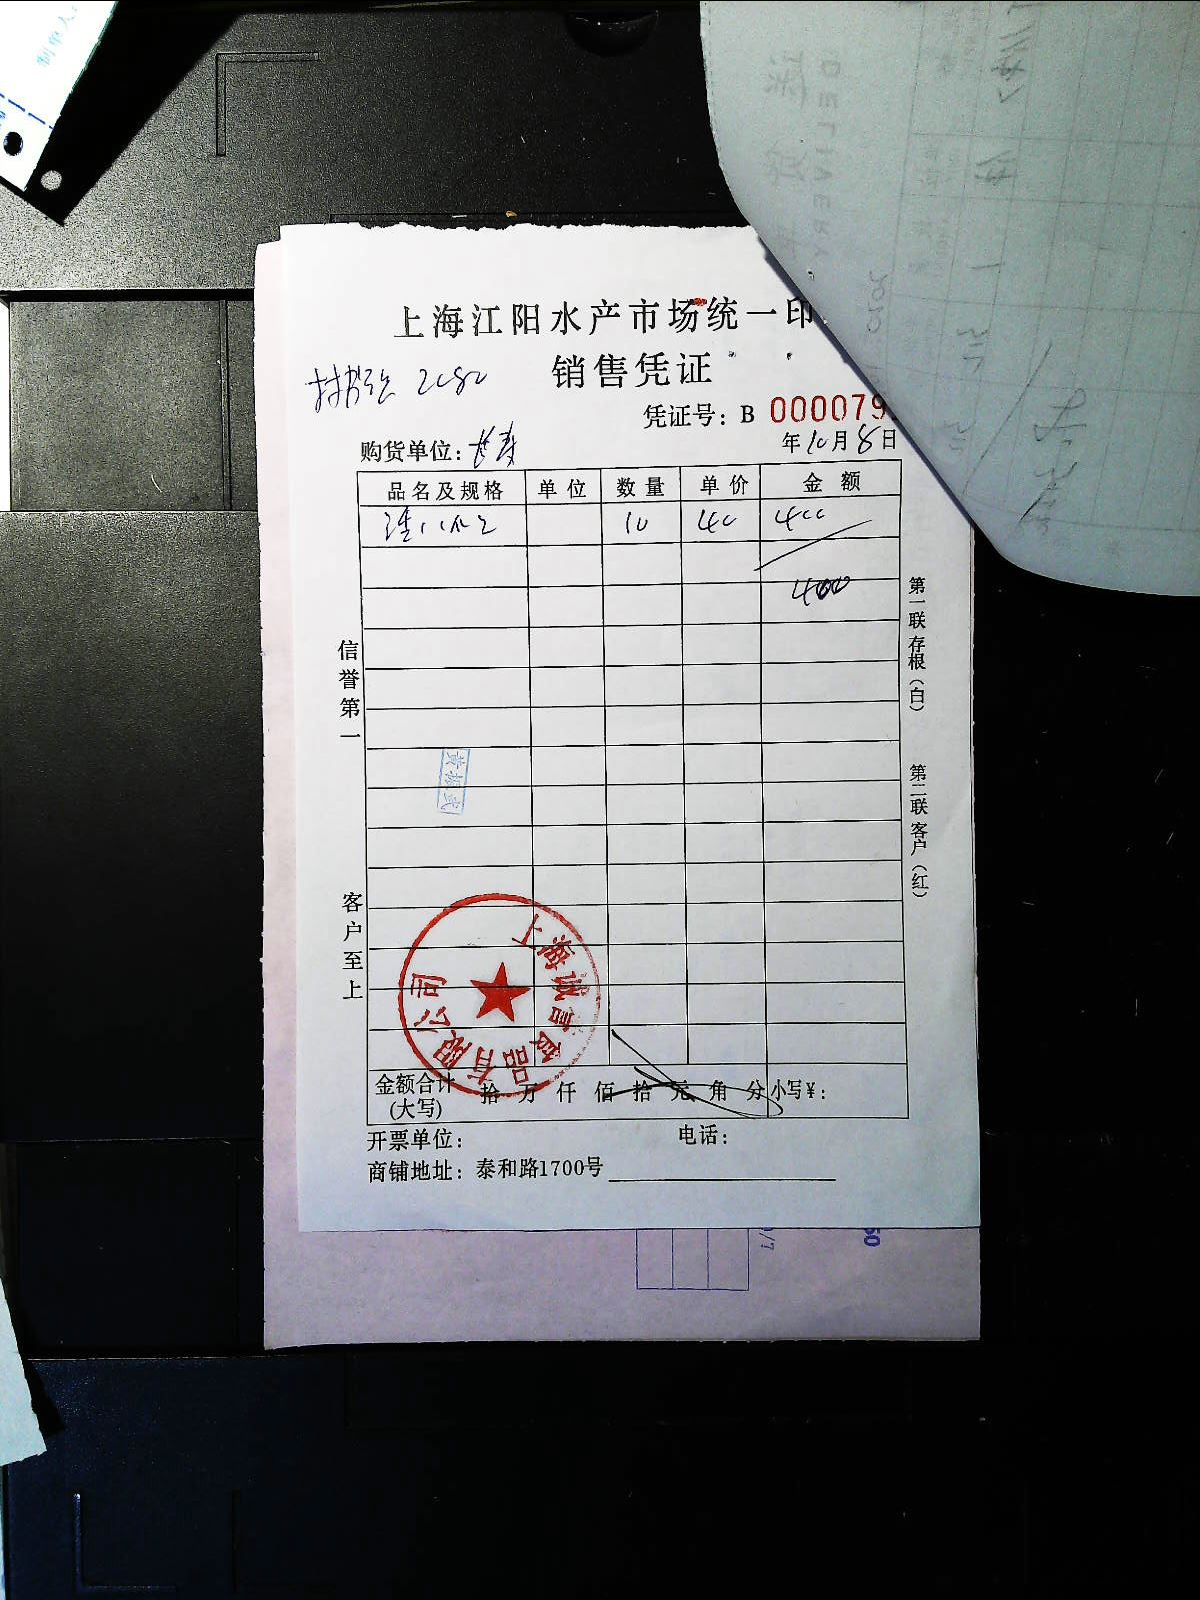 上海江阳水产市场统一印
销售凭证
凭证号：B 000079
购货单位：长寿
年10月8日
品名及规格 单位 数量 单价 金额
10 40 400
400
信誉第一
客户至上
第一联存根（白）
第二联客户（红）
黄振武
上海诚信食品有限公司
金额合计(大写) 拾 万 仟 佰 拾 元 角 分 小写¥：
开票单位： 电话：
商铺地址：泰和路1700号